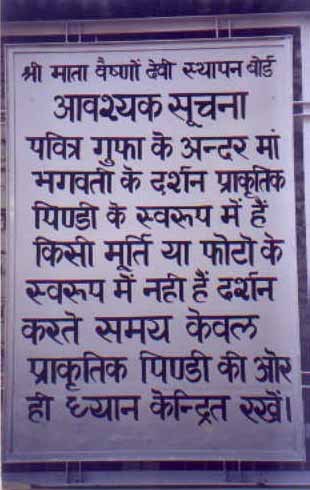 श्री माता वैष्णों देवी स्थापन बोर्ड
आवश्यक सूचना
पवित्र गुफा के अन्दर मां
भगवती के दर्शन प्राकृतिक
पिण्डी के स्वरूप में हैं
किसी मूर्ति या फोटो के
स्वरूप में नही हैं दर्शन
करते समय केवल
प्राकृतिक पिण्डी की ओर
ही ध्यान केन्द्रित रखें।